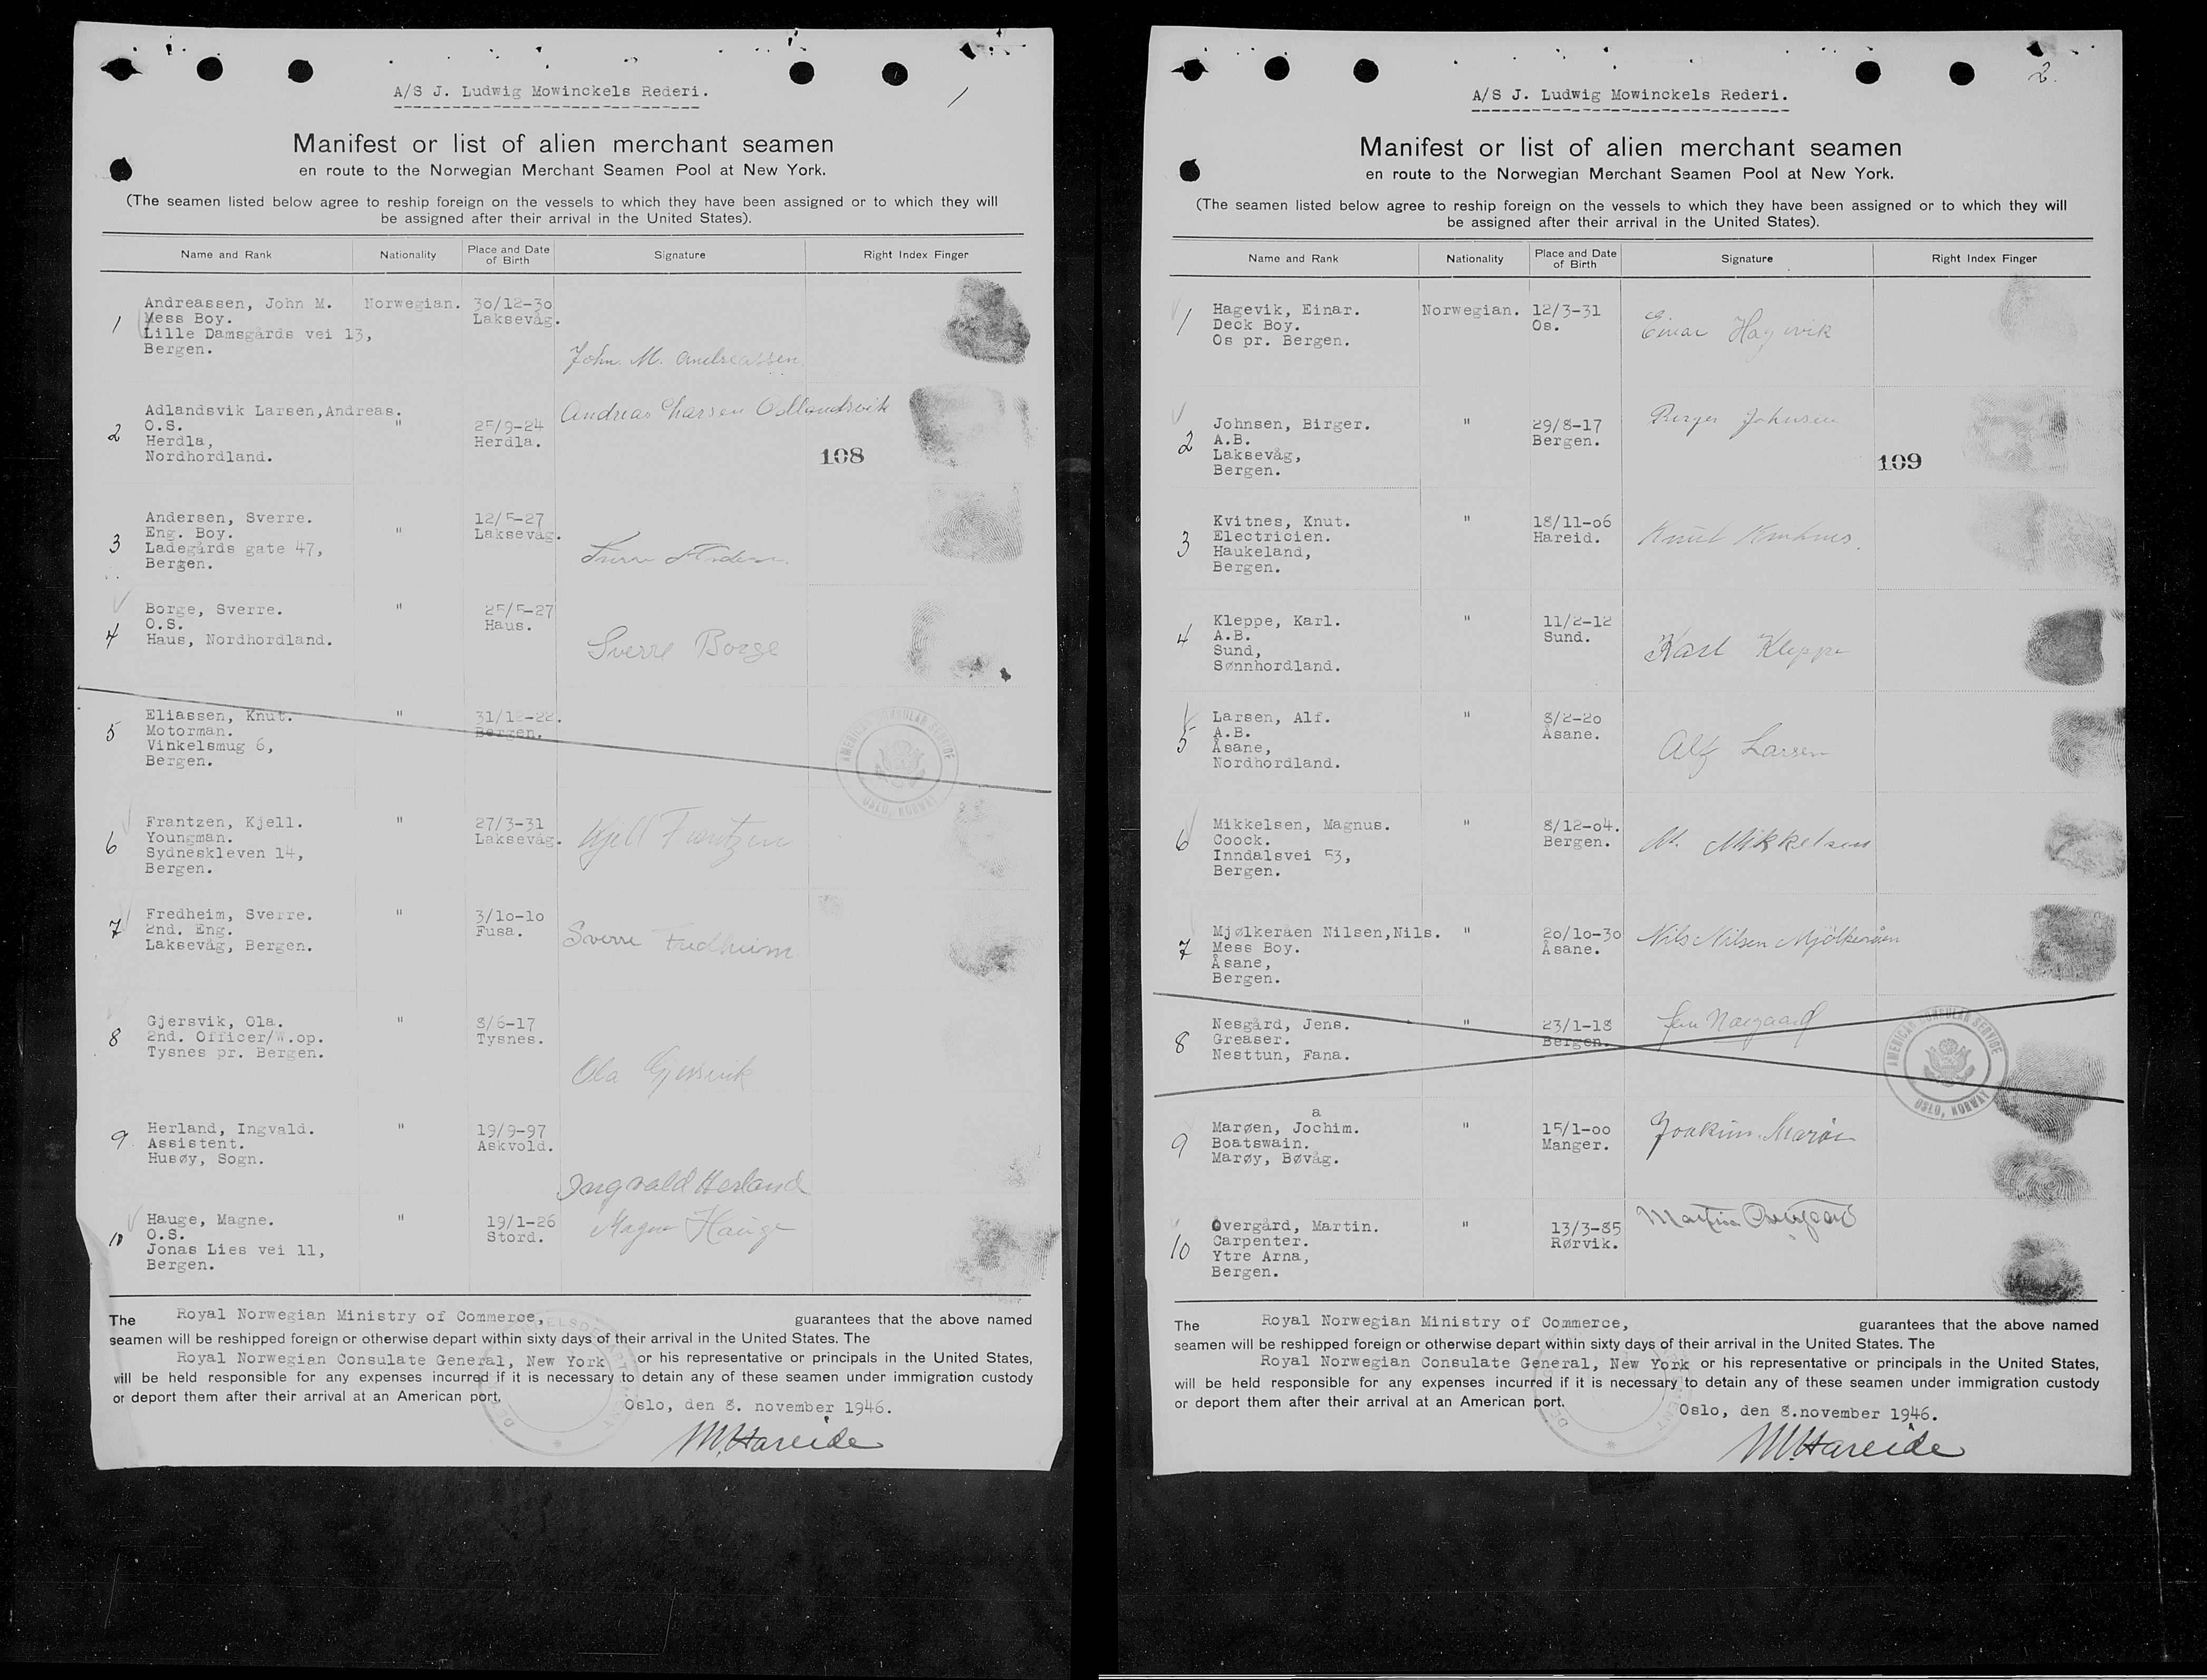 A/S J. Ludwig Mowinckels Rederi.
1
Manifest or list of alien merchant seamen
en route to the Norwegian Merchant Seamen Pool at New York.
(The seamen listed below agree to reship foreign on the vessels to which they have been assigned or to which they will
be assigned after their arrival in the United States).
Name and Rank Nationality Place and Date of Birth Signature Right Index Finger
1 Andreassen, John M. Norwegian. 30/12-30
Mess Boy. Laksevåg.
Lille Damsgårds vei 13,
Bergen.
John. M. Andreassen.
Adlandsvik Larsen,Andreas. Andreas Larsen Adlandsvik
2 O.S. " 25/9-24
Herdla, Herdla.
Nordhordland.
108
3 Andersen, Sverre. 12/5-27
Eng. Boy. " Laksevåg.
Ladegårds gate 47,
Bergen.
4 Borge, Sverre. " 25/5-27
O.S. Haus.
Haus, Nordhordland.
Sverre Borge
5 Eliassen, Knut. " 31/12-22.
Motorman. Bergen.
Vinkelsmug 6,
Bergen.
AMERICAN CONSULAR SERVICE
OSLO, NORWAY
6 Frantzen, Kjell. " 27/3-31
Youngman. Laksevåg. Kjell Frantzen
Sydneskleven 14,
Bergen.
7 Fredheim, Sverre. " 3/10-10
2nd. Eng. Fusa.
Laksevåg, Bergen.
Sverre Fredheim
8 Gjersvik, Ola. " 8/6-17
2nd. Officer/W.op. Tysnes.
Tysnes pr. Bergen.
Ola Gjersvik
9 Herland, Ingvald. " 19/9-97
Assistent. Askvold.
Husøy, Sogn.
Ingvald Herland
10 Hauge, Magne. " 19/1-26 Magne Hauge
O.S. Stord.
Jonas Lies vei 11,
Bergen.
The Royal Norwegian Ministry of Commerce, guarantees that the above named
seamen will be reshipped foreign or otherwise depart within sixty days of their arrival in the United States. The
Royal Norwegian Consulate General, New York or his representative or principals in the United States,
will be held responsible for any expenses incurred if it is necessary to detain any of these seamen under immigration custody
or deport them after their arrival at an American port.
Oslo, den 8. november 1946.
M. Hareide
2.
A/S J. Ludwig Mowinckels Rederi.
Manifest or list of alien merchant seamen
en route to the Norwegian Merchant Seamen Pool at New York.
(The seamen listed below agree to reship foreign on the vessels to which they have been assigned or to which they will
be assigned after their arrival in the United States).
Name and Rank Nationality Place and Date of Birth Signature Right Index Finger
1 Hagevik, Einar. Norwegian. 12/3-31
Deck Boy. Os. Einar Hagevik
Os pr. Bergen.
2 Johnsen, Birger. " 29/8-17 Birger Johnsen
A.B. Bergen.
Laksevåg,
Bergen.
109
3 Kvitnes, Knut. " 18/11-06
Electricien. Hareid. Knut Kvitnes.
Haukeland,
Bergen.
4 Kleppe, Karl. " 11/2-12
A.B. Sund.
Sund, Karl Kleppe
Sønnhordland.
5 Larsen, Alf. " 8/2-20
A.B. Åsane.
Åsane, Alf Larsen
Nordhordland.
6 Mikkelsen, Magnus. " 8/12-04.
Coock. Bergen. M. Mikkelsen
Inndalsvei 53,
Bergen.
7 Mjølkeråen Nilsen,Nils. " 20/10-30 Nils Nilsen Mjölkeråen
Mess Boy. Åsane.
Åsane,
Bergen.
8 Nesgård, Jens. " 23/1-18
Greaser. Bergen.
Nesttun, Fana.
AMERICAN CONSULAR SERVICE
OSLO, NORWAY
a
9 Marøen, Jochim. " 15/1-00 Joakim Marøen
Boatswain. Manger.
Marøy, Bøvåg.
10 Øvergård, Martin. " 13/3-85
Carpenter. Rørvik.
Ytre Arna,
Bergen.
The Royal Norwegian Ministry of Commerce, guarantees that the above named
seamen will be reshipped foreign or otherwise depart within sixty days of their arrival in the United States. The
Royal Norwegian Consulate General, New York or his representative or principals in the United States,
will be held responsible for any expenses incurred if it is necessary to detain any of these seamen under immigration custody
or deport them after their arrival at an American port.
Oslo, den 8.november 1946.
M. Hareide